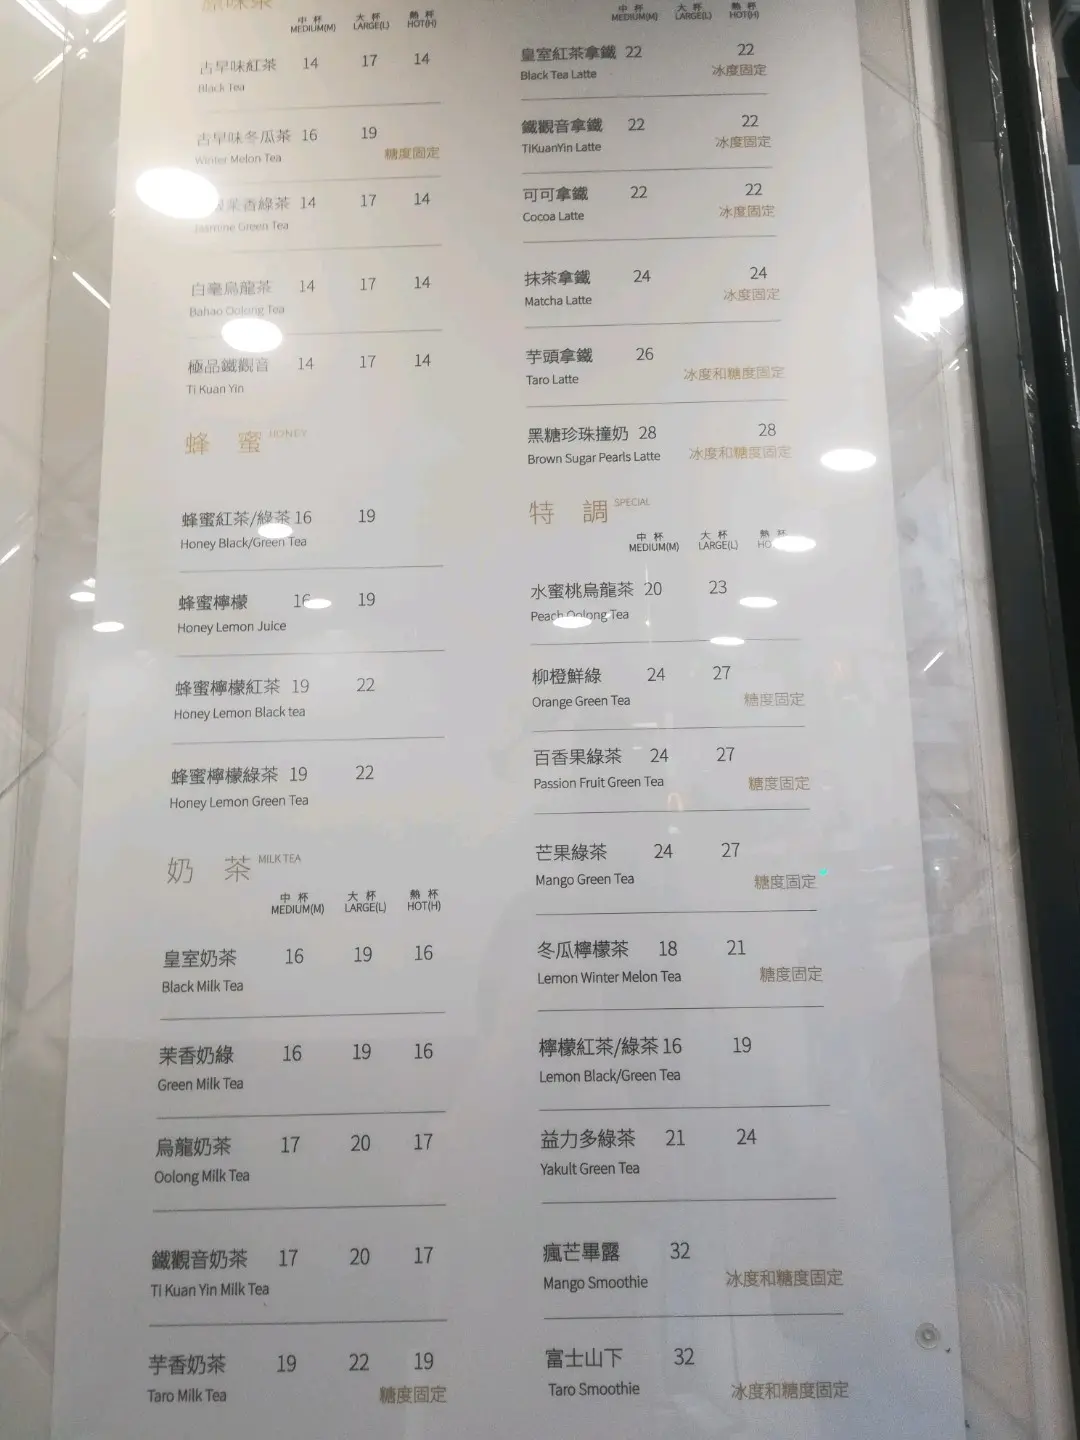 原味茶
中杯 大杯 熱杯
MEDIUM(M) LARGE(L) HOT(H)
古早味紅茶 14 17 14
Black Tea
古早味冬瓜茶 16 19
Winter Melon Tea 糖度固定
茉香綠茶 14 17 14
Jasmine Green Tea
白毫烏龍茶 14 17 14
Bahao Oolong Tea
極品鐵觀音 14 17 14
Ti Kuan Yin
蜂蜜 HONEY
蜂蜜紅茶/綠茶 16 19
Honey Black/Green Tea
蜂蜜檸檬 16 19
Honey Lemon Juice
蜂蜜檸檬紅茶 19 22
Honey Lemon Black tea
蜂蜜檸檬綠茶 19 22
Honey Lemon Green Tea
奶茶 MILK TEA
中杯 大杯 熱杯
MEDIUM(M) LARGE(L) HOT(H)
皇室奶茶 16 19 16
Black Milk Tea
茉香奶綠 16 19 16
Green Milk Tea
烏龍奶茶 17 20 17
Oolong Milk Tea
鐵觀音奶茶 17 20 17
Ti Kuan Yin Milk Tea
芋香奶茶 19 22 19
Taro Milk Tea 糖度固定
中杯 大杯 熱杯
MEDIUM(M) LARGE(L) HOT(H)
皇室紅茶拿鐵 22 22
Black Tea Latte 冰度固定
鐵觀音拿鐵 22 22
TiKuanYin Latte 冰度固定
可可拿鐵 22 22
Cocoa Latte 冰度固定
抹茶拿鐵 24 24
Matcha Latte 冰度固定
芋頭拿鐵 26
Taro Latte 冰度和糖度固定
黑糖珍珠撞奶 28 28
Brown Sugar Pearls Latte 冰度和糖度固定
特調 SPECIAL
中杯 大杯 熱杯
MEDIUM(M) LARGE(L)
水蜜桃烏龍茶 20 23
Peach Oolong Tea
柳橙鮮綠 24 27
Orange Green Tea 糖度固定
百香果綠茶 24 27
Passion Fruit Green Tea 糖度固定
芒果綠茶 24 27
Mango Green Tea 糖度固定
冬瓜檸檬茶 18 21
Lemon Winter Melon Tea 糖度固定
檸檬紅茶/綠茶 16 19
Lemon Black/Green Tea
益力多綠茶 21 24
Yakult Green Tea
瘋芒畢露 32
Mango Smoothie 冰度和糖度固定
富士山下 32
Taro Smoothie 冰度和糖度固定